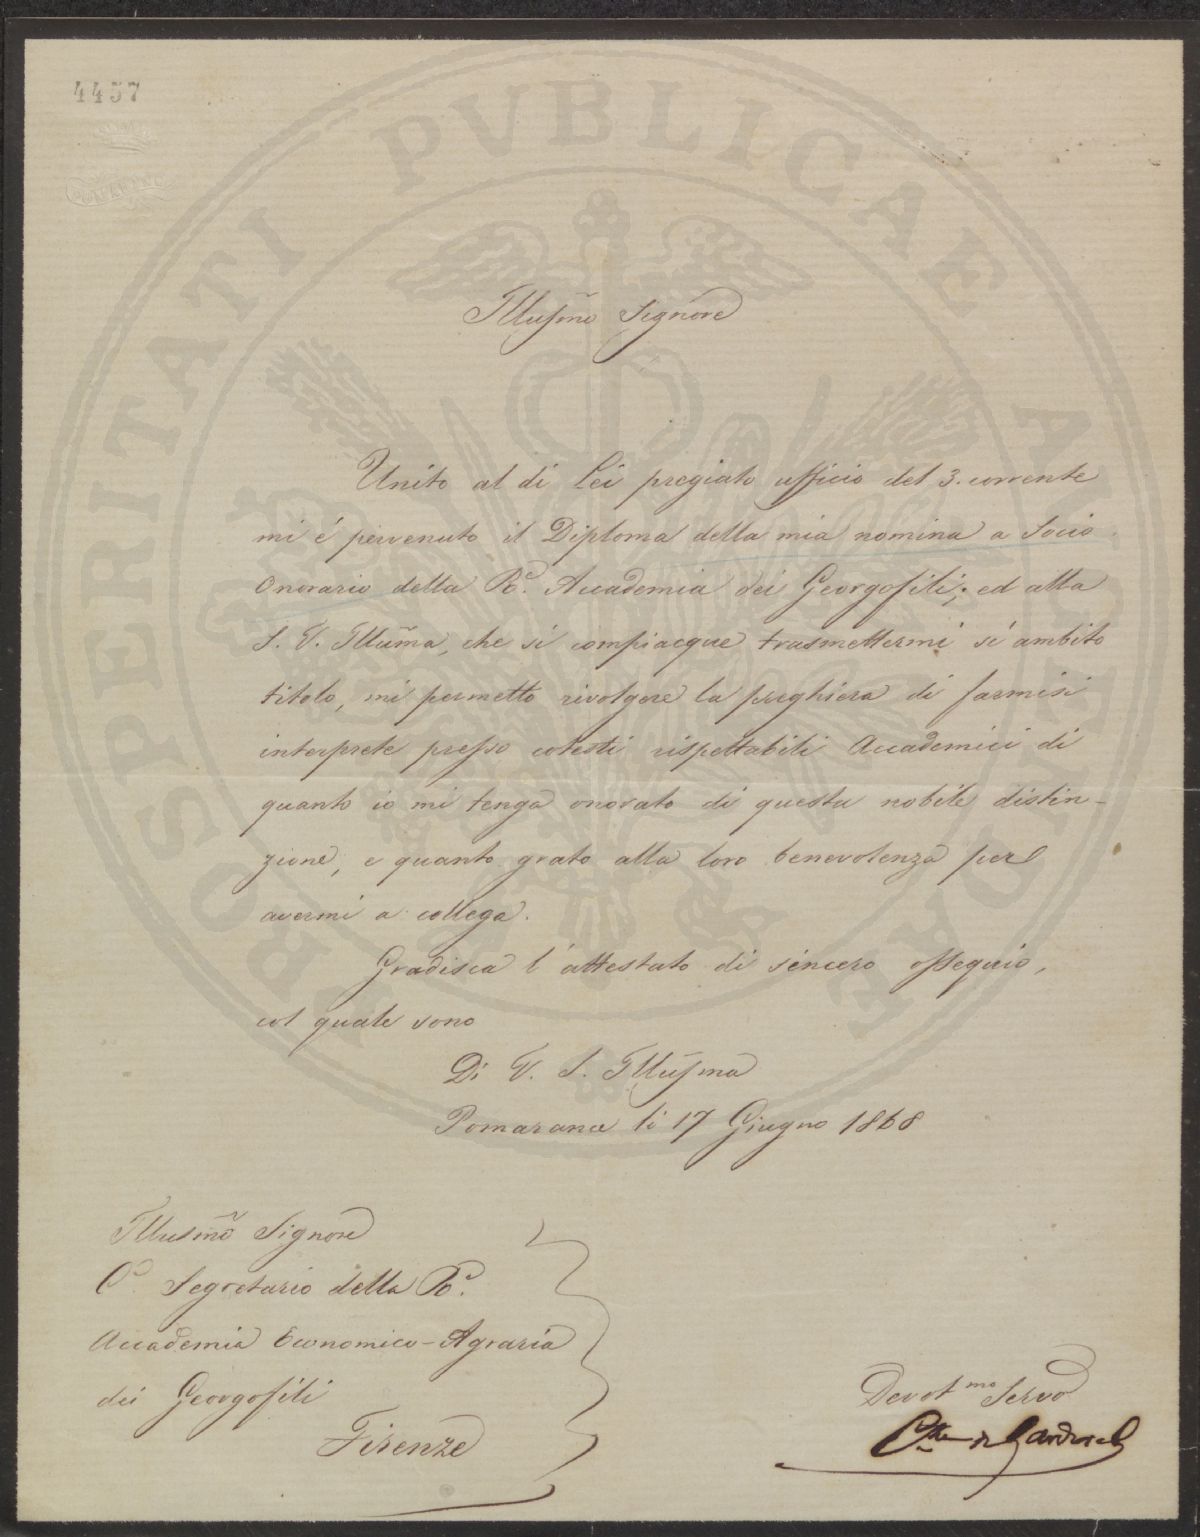 4457
PROSPERITATI PVBLICAE AVGENDAE
Illusmo Signore
Unito al di Lei pregiato ufficio del 3. corrente
mi è pervenuto il Diploma della mia nomina a Socio
Onorario della Re. Accademia dei Georgofili; ed alla
S. V. Illuma, che si compiacque trasmettermi sì ambito
titolo, mi permetto rivolgere la preghiera di farmisi
interprete presso cotesti rispettabili Accademici di
quanto io mi tenga onorato di questa nobile distin-
zione, e quanto grato alla loro benevolenza per
avermi a collega.
Gradisca l'attestato di sincero ossequio,
col quale sono
Di V. S. Illusma
Pomarance li 17 Giugno 1868
Illusmo Signore
Segretario della Re.
Accademia Economico-Agraria
dei Georgofili
Firenze
Devotmo Servo
de Larderel